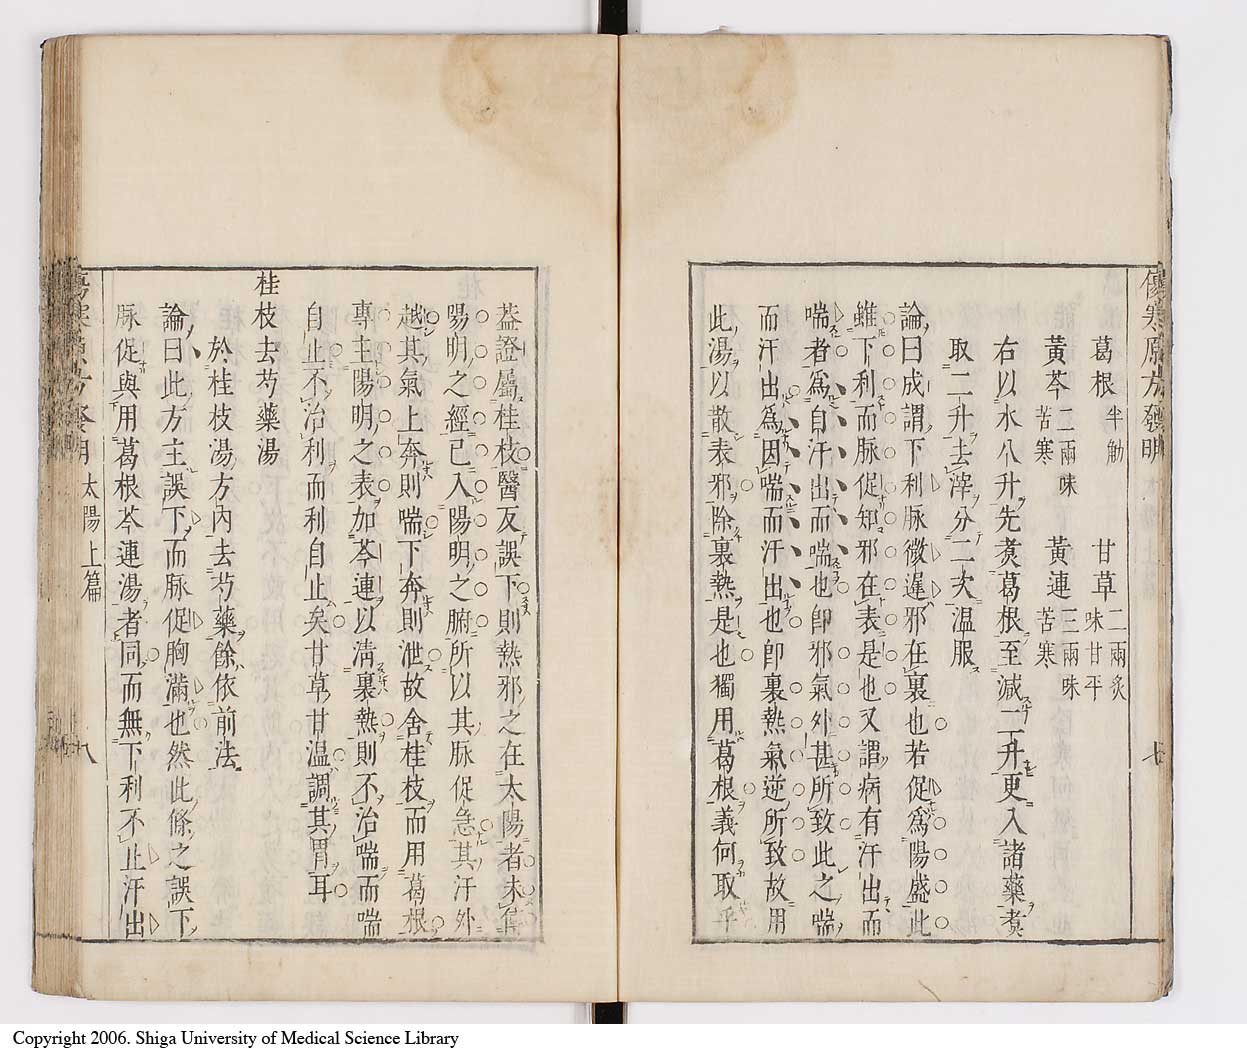 傷寒原方發明
七
葛根 半觔 甘草 二兩炙味甘平
黃芩 二兩味苦寒 黃連 三兩味苦寒
右以水八升先煑葛根至減二升更入諸藥煑
取二升去滓分二次温服
論曰成謂下利脉微遲邪在裏也若促爲陽盛此
雖下利而脉促知邪在表是也又謂病有汗出而
喘者爲自汗出而喘也卽邪氣外甚所致此之喘
而汗出爲因喘而汗出也卽裏熱氣逆所致故用
此湯以散表邪除裏熱是也獨用葛根義何取乎
葢證屬桂枝醫反誤下則熱邪之在太陽者未傳
陽明之經已入陽明之腑所以其脉促急其汗外
越其氣上奔則喘下奔則泄故舍桂枝而用葛根
專主陽明之表加芩連以清裏熱則不治喘而喘
自止不治利而利自止矣甘草甘温調其胃耳
桂枝去芍藥湯
於桂枝湯方內去芍藥餘依前法
論曰此方主誤下而脉促胸滿也然此條之誤下
脉促與用葛根芩連湯者同而無下利不止汗出
太陽上篇
八
Copyright 2006. Shiga University of Medical Science Library